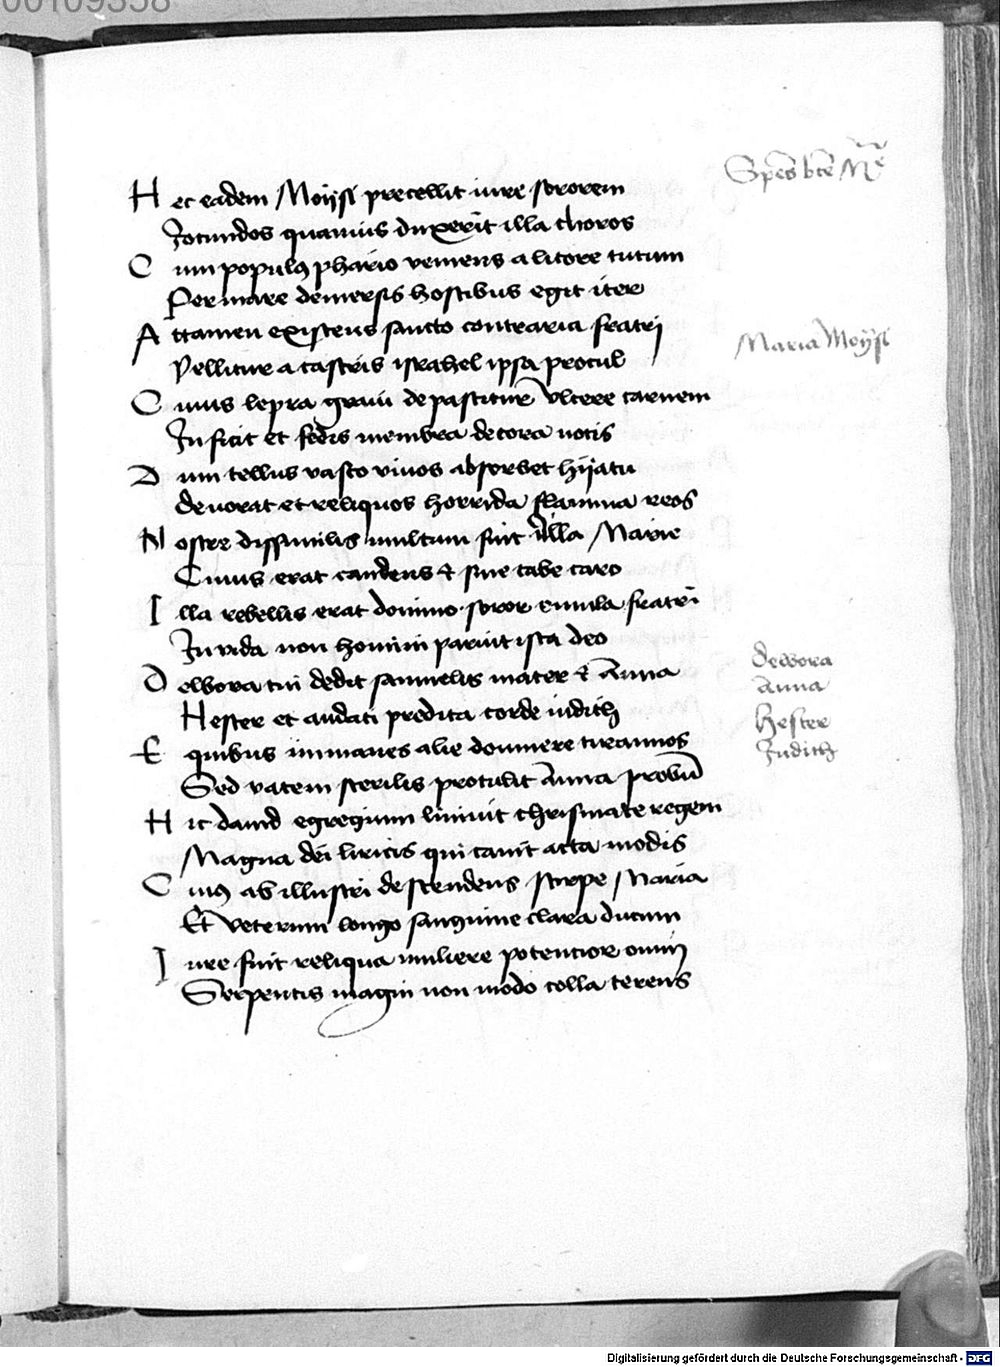 00109358
Spēs btē Mͬͤ
Hec eadem Moÿsi precellit iure sororem
Jocundos quamuis duxerit illa choros
Cum populꝰ phario veniens a litore tutum
Per mare demersis hostibus egit iter
Attamen existens sancto contraria fratri
Maria Moÿsi
Pellitur a castris israhel ipsa procul
Cuius lepra graui depascitur vlcere carnem
Inficit et fedis membra decora notis
Dum tellus vasto viuos absorbet hijatu
deuorat et reliquos horrida flamma reos
Nostre dissimilis multum fuit illa Marie
Cuius erat candens & sine tabe caro
Illa rebellis erat domino soror emula fratri
Inuida non homini paruit ista deo
Delbora cui dedit samuelis mater & Anna
Hester et audaci predita corde iudith
E quibus immanes alie domuere tirannos
Sed vatem sterilis protulit Anna probū
Hic dauid egregium liniuit chrismate regem
Magna dei liricis qui canit acta modis
Cuiꝰ ab illustri descendens stirpe Maria
Et veterum longo sanguine clara ducum
Iure fuit reliqua muliere potentior omni
Serpentis magni non modo colla terens
delbora
Anna
Hester
Judith
Digitalisierung gefördert durch die Deutsche Forschungsgemeinschaft - DFG